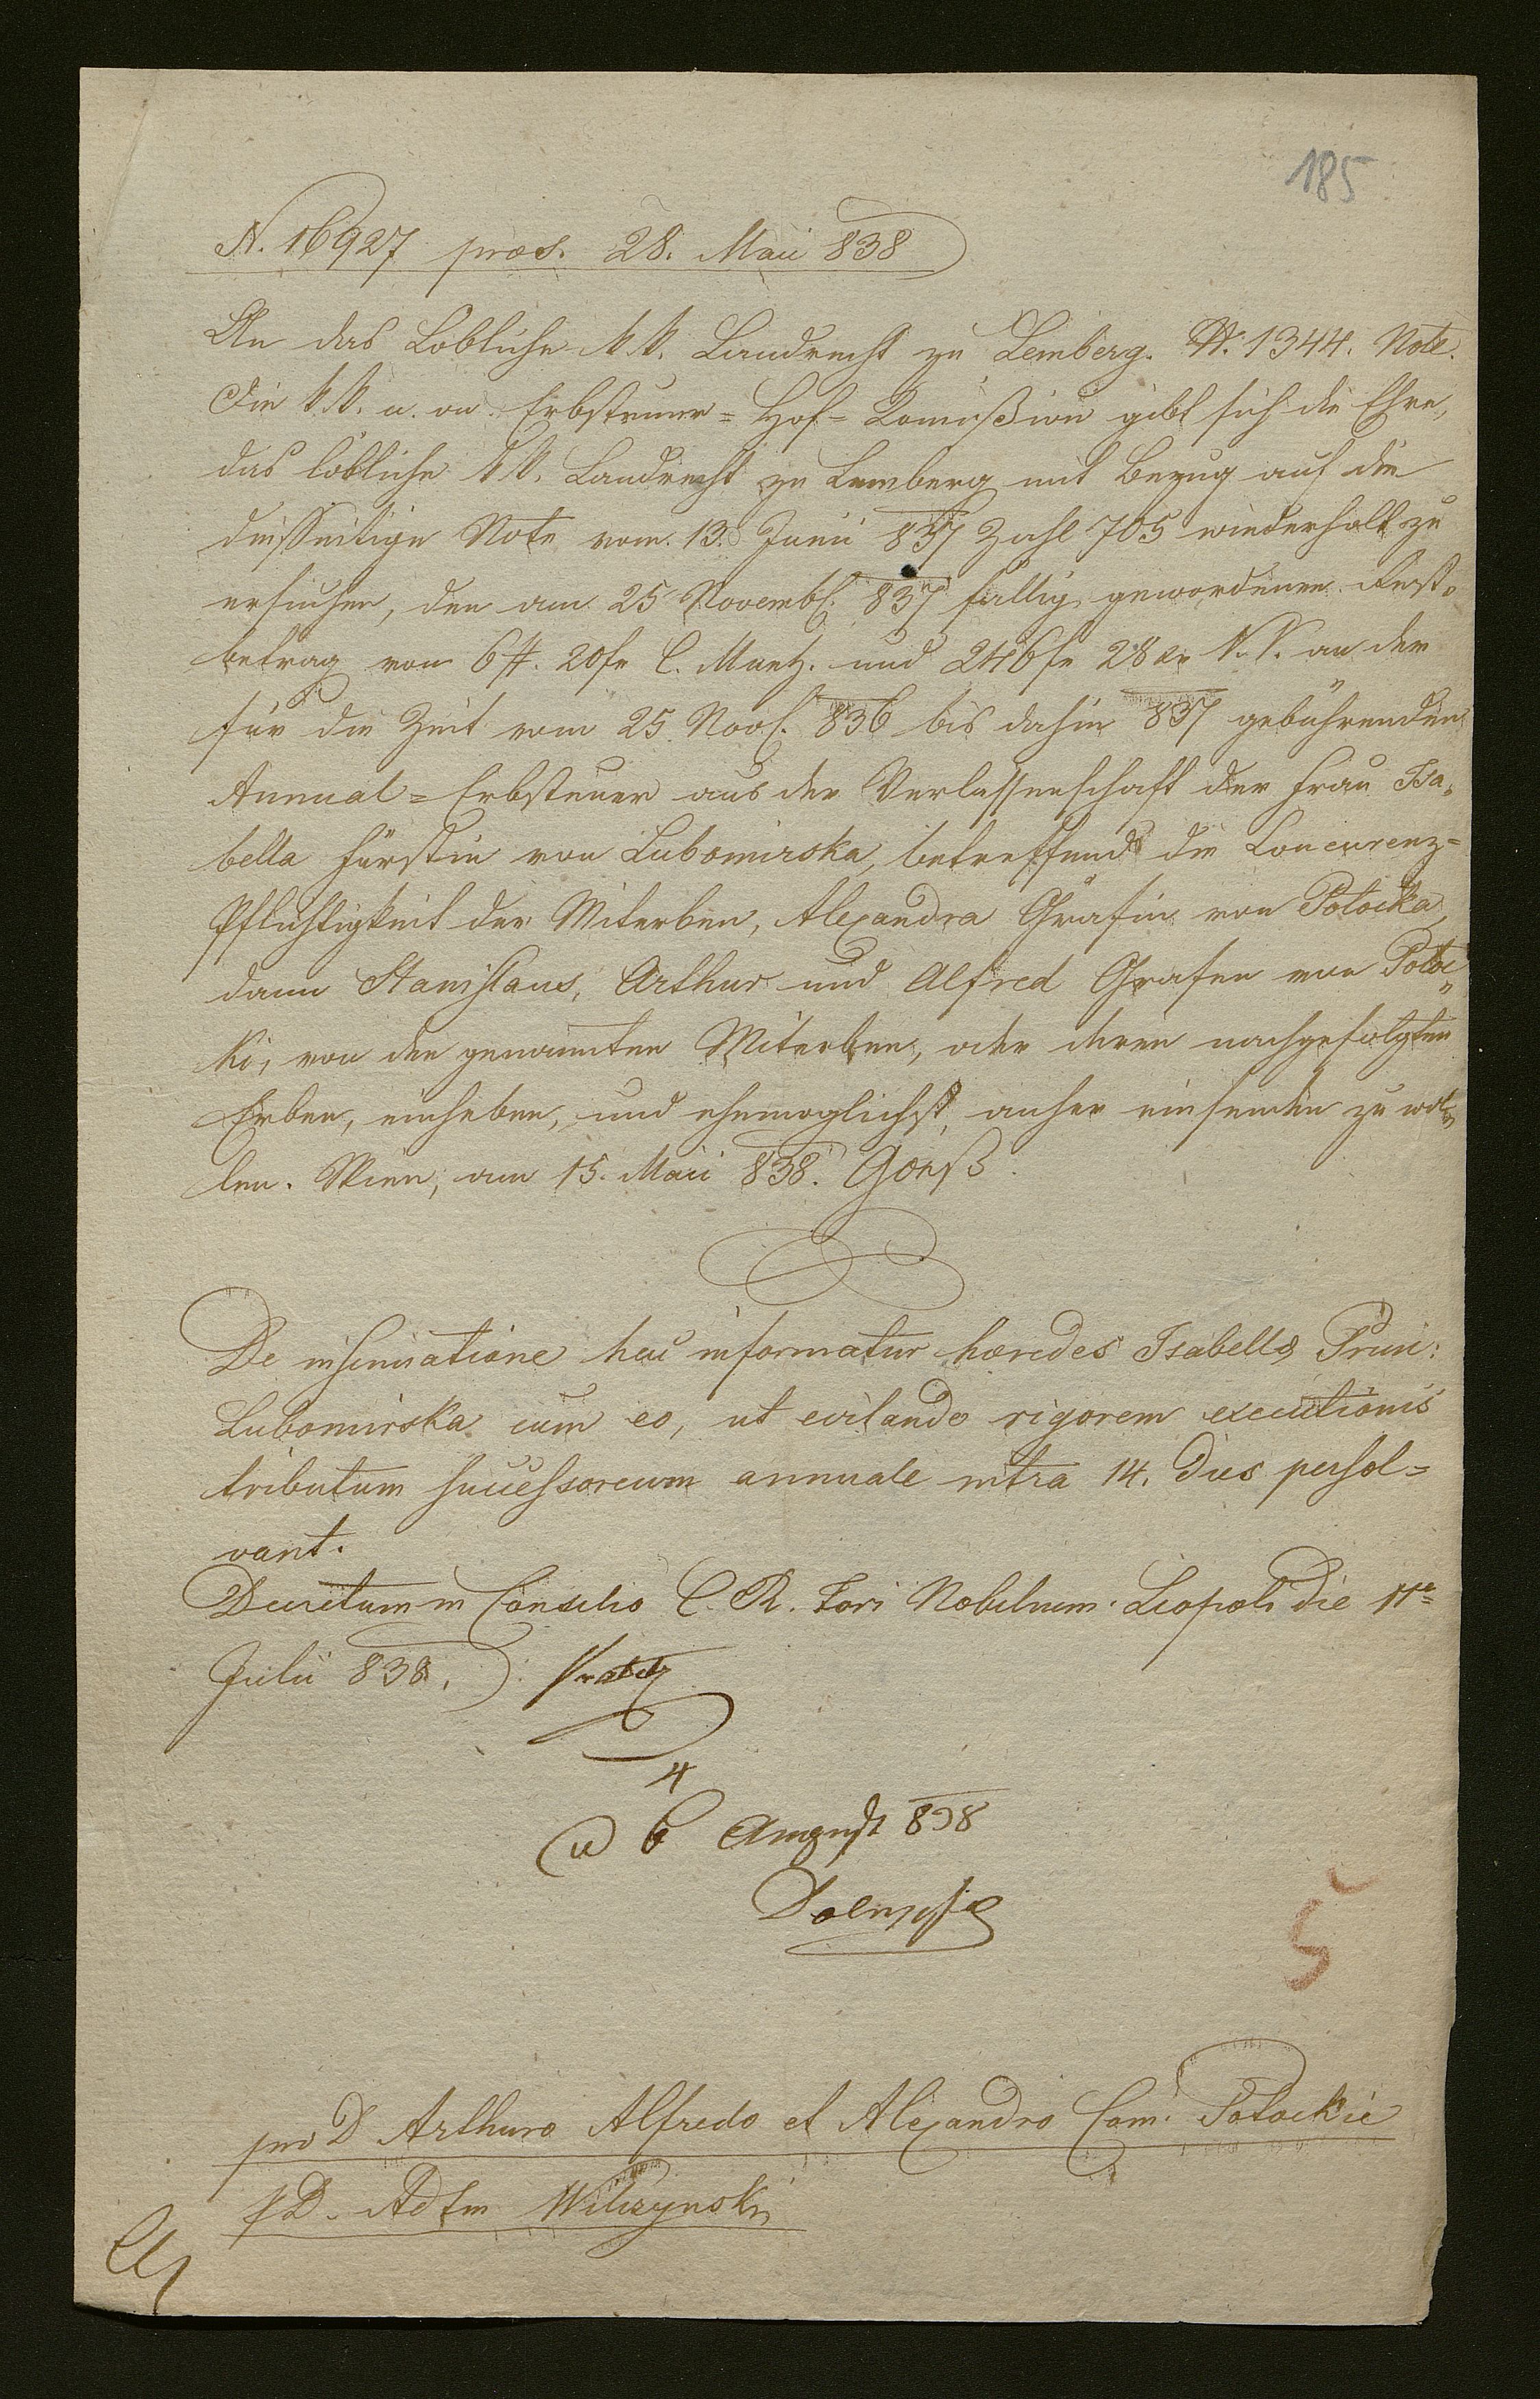 185
N. 16927 præs. 28. Maii 838
An das Lobliche k. k. Landrecht zu Lemberg. N. 1344. Note.
Die k. k. n. ö. Erbsteuer=Hof=Komißion gibt sich die Ehre,
das lobliche k. k. Landrecht zu Lemberg mit Bezug auf die
diesseitige Note vom 13. Junii 837 Zahl 705 wiederholt zu
ersuchen, den am 25 Novemb. 837 fällig gewordenen Rest=
betrag von 6 f. 20 C. Muntz. und 246 f 28 xr an der
für die Zeit vom 25 Nov. 836 bis dahin 837 gebührenden
Annual=Erbsteuer aus der Verlassenschaft der Frau Isa=
bella Fürstin von Lubomirska, betreffend die Concurenz=
Pflichtigkeit der Miterben, Alexandra Gräfin von Potocka,
dann Stanislaus, Arthur und Alfred Grafen von Potoc=
ki, von den genannten Miterben, oder ihren nachgefolgten
Erben, einheben, und ehemoglichst anher einsenden zu wol=
len. Wien, am 15. Maii 838. Goeß.
De insinuatione hac informatur hæredes Isabella Prin:
Lubomirska cum eo, ut evitando rigorem executionis
tributum successoreum annuale intra 14. dies persol=
vant.
Decretum in Consilio C. R. Fori Nobilium. Leopoli die 11a
Julii 838.
4
6 August 838
5
pro D Arthuro Alfredo et Alexandro Com. Potockie
p D. Adtm Wilczynski